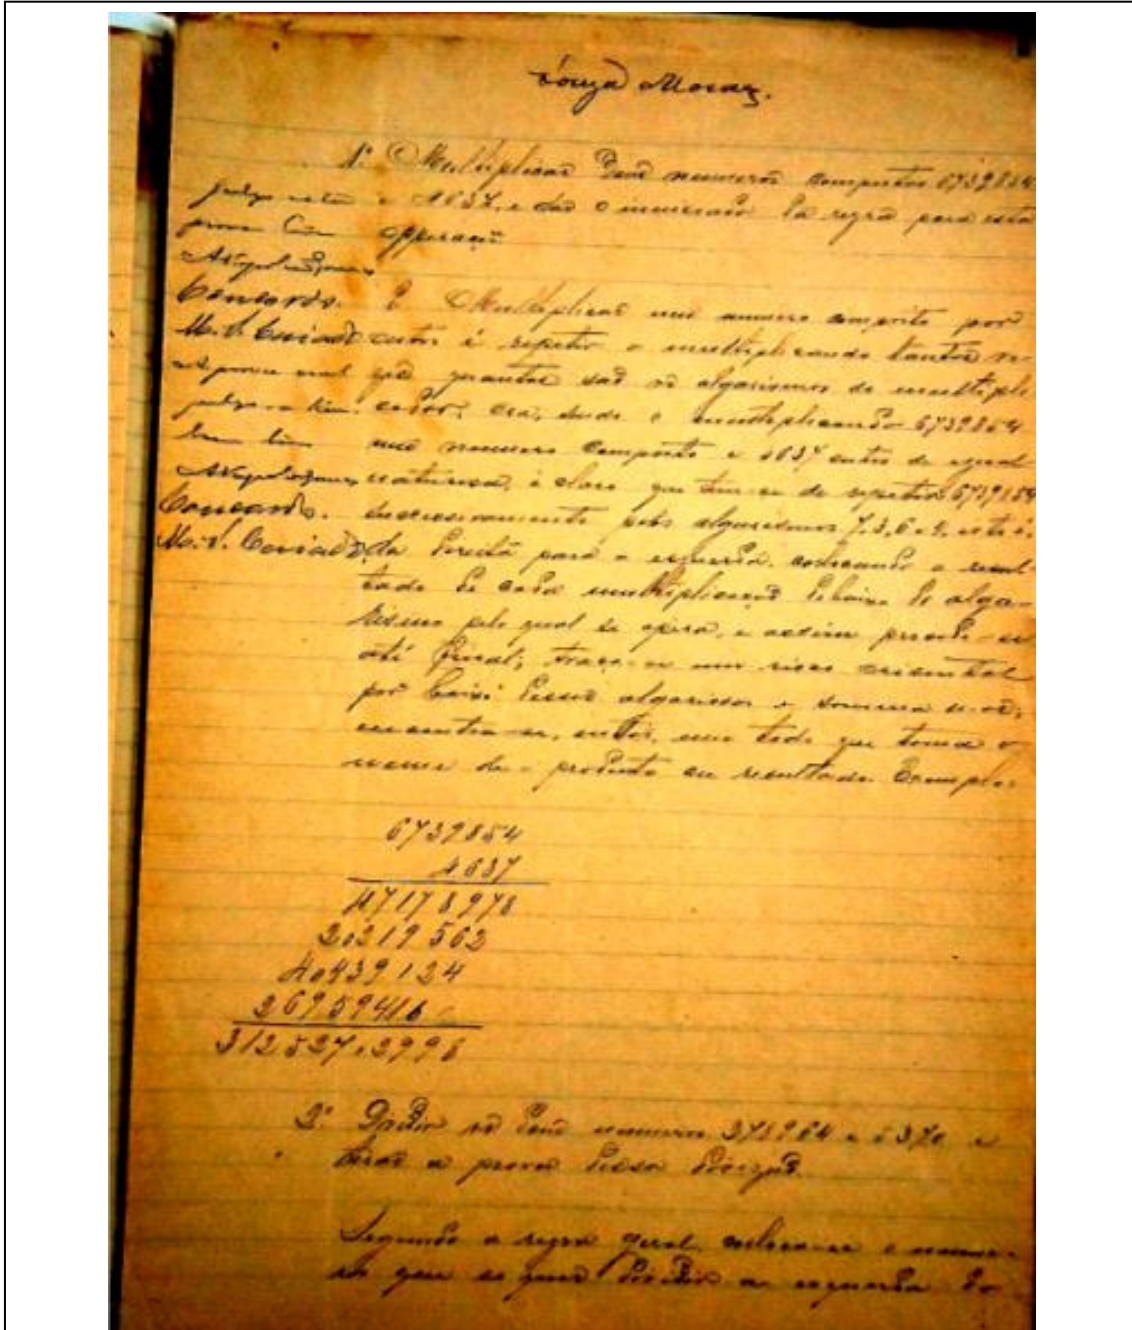 Souza Moraz.
1º Multiplicar dous numeros compostos 6739854
julgo esta e 4637, e dar o enunciado da regra para esta
prova operação
Concordo. Multiplicar um numero composto por
M. S. outro é repetir o multiplicando tantas ve-
A prova oral zes quantos são os algarismos do multipli
julgo-a cador; ora, sendo o multiplicando 6739854
um numero composto e 4637 outro de egual
naturesa, é claro que tem-se de repetir 6739854
Concordo. successivamente pelos algarismos 7, 3, 6 e 4, isto é,
M. S. da direita para a esquerda, collocando o resul
tado de cada multiplicação debaixo do alga-
rismo pelo qual se opera, e assim procede-se
até final; traça-se um risco orisontal
por baixo desses algarismos e somma-se-os;
encontra-se, então, um todo que toma o
nome de - producto ou resultado. Exemplo:
6739854
4637
47178978
20219562
40439124
26959416
31252702998
2º Dividir os dous numeros e
tirar a prova dessa divizão.
Segundo a regra geral, colloca-se o nume-
ro que se quer dividir a esquerda do